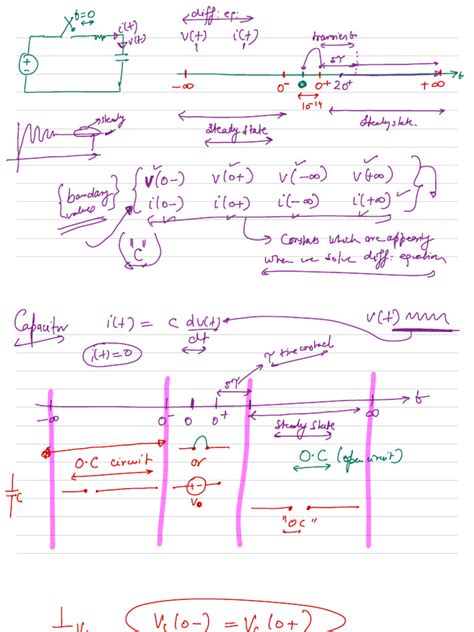 diff. eqn.
t=0
i(t)
v(t)
v(t) i(t)
transient
5τ
-∞ 0- 0 0+ 20+ +∞ t
10-14
steady state
steady state.
steady
{boundary values}
v(0-) v(0+) v(-∞) v(+∞)
i(0-) i(0+) i(-∞) i(+∞)
"C"
Constants which are appearing
when we solve diff. equation
Capacitor i(t) = C dv(t)/dt
v(t)
i(t)=0
τ time constant
5τ
-∞ 0- 0 0+ ∞ t
steady state
O.C circuit
or
O.C (open circuit)
C
V0
"OC"
Vc(0-) = Vc(0+)